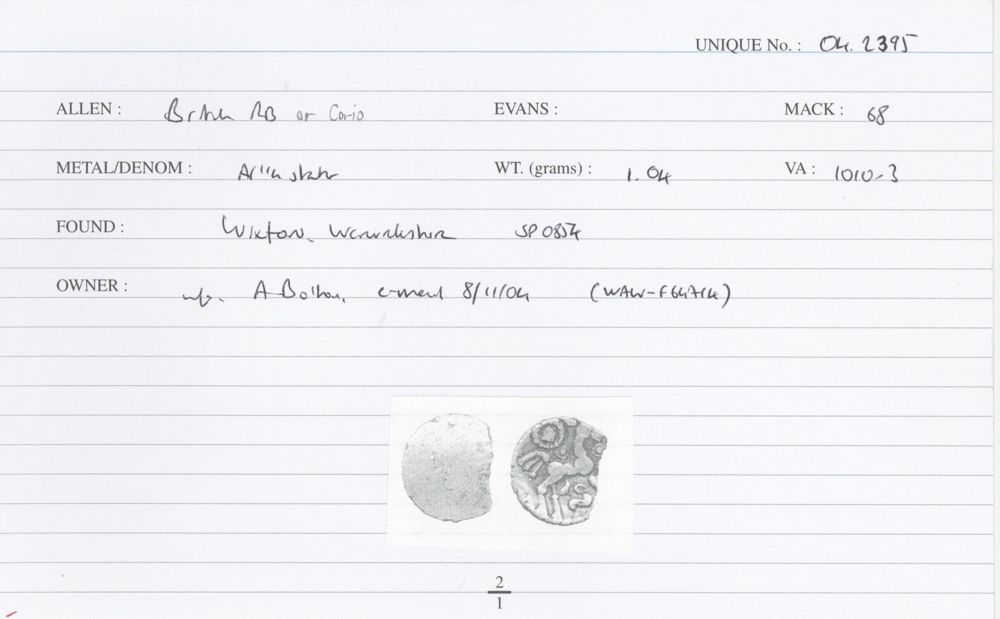 UNIQUE No. : 04. 2395
ALLEN : British RB or Corio EVANS : MACK : 68
METAL/DENOM : WT. (grams) : 1.04 VA : 1010-3
FOUND : Wixford, Warwickshire SP 0854
OWNER : A Bolton, e-mail 8/11/04
2
1